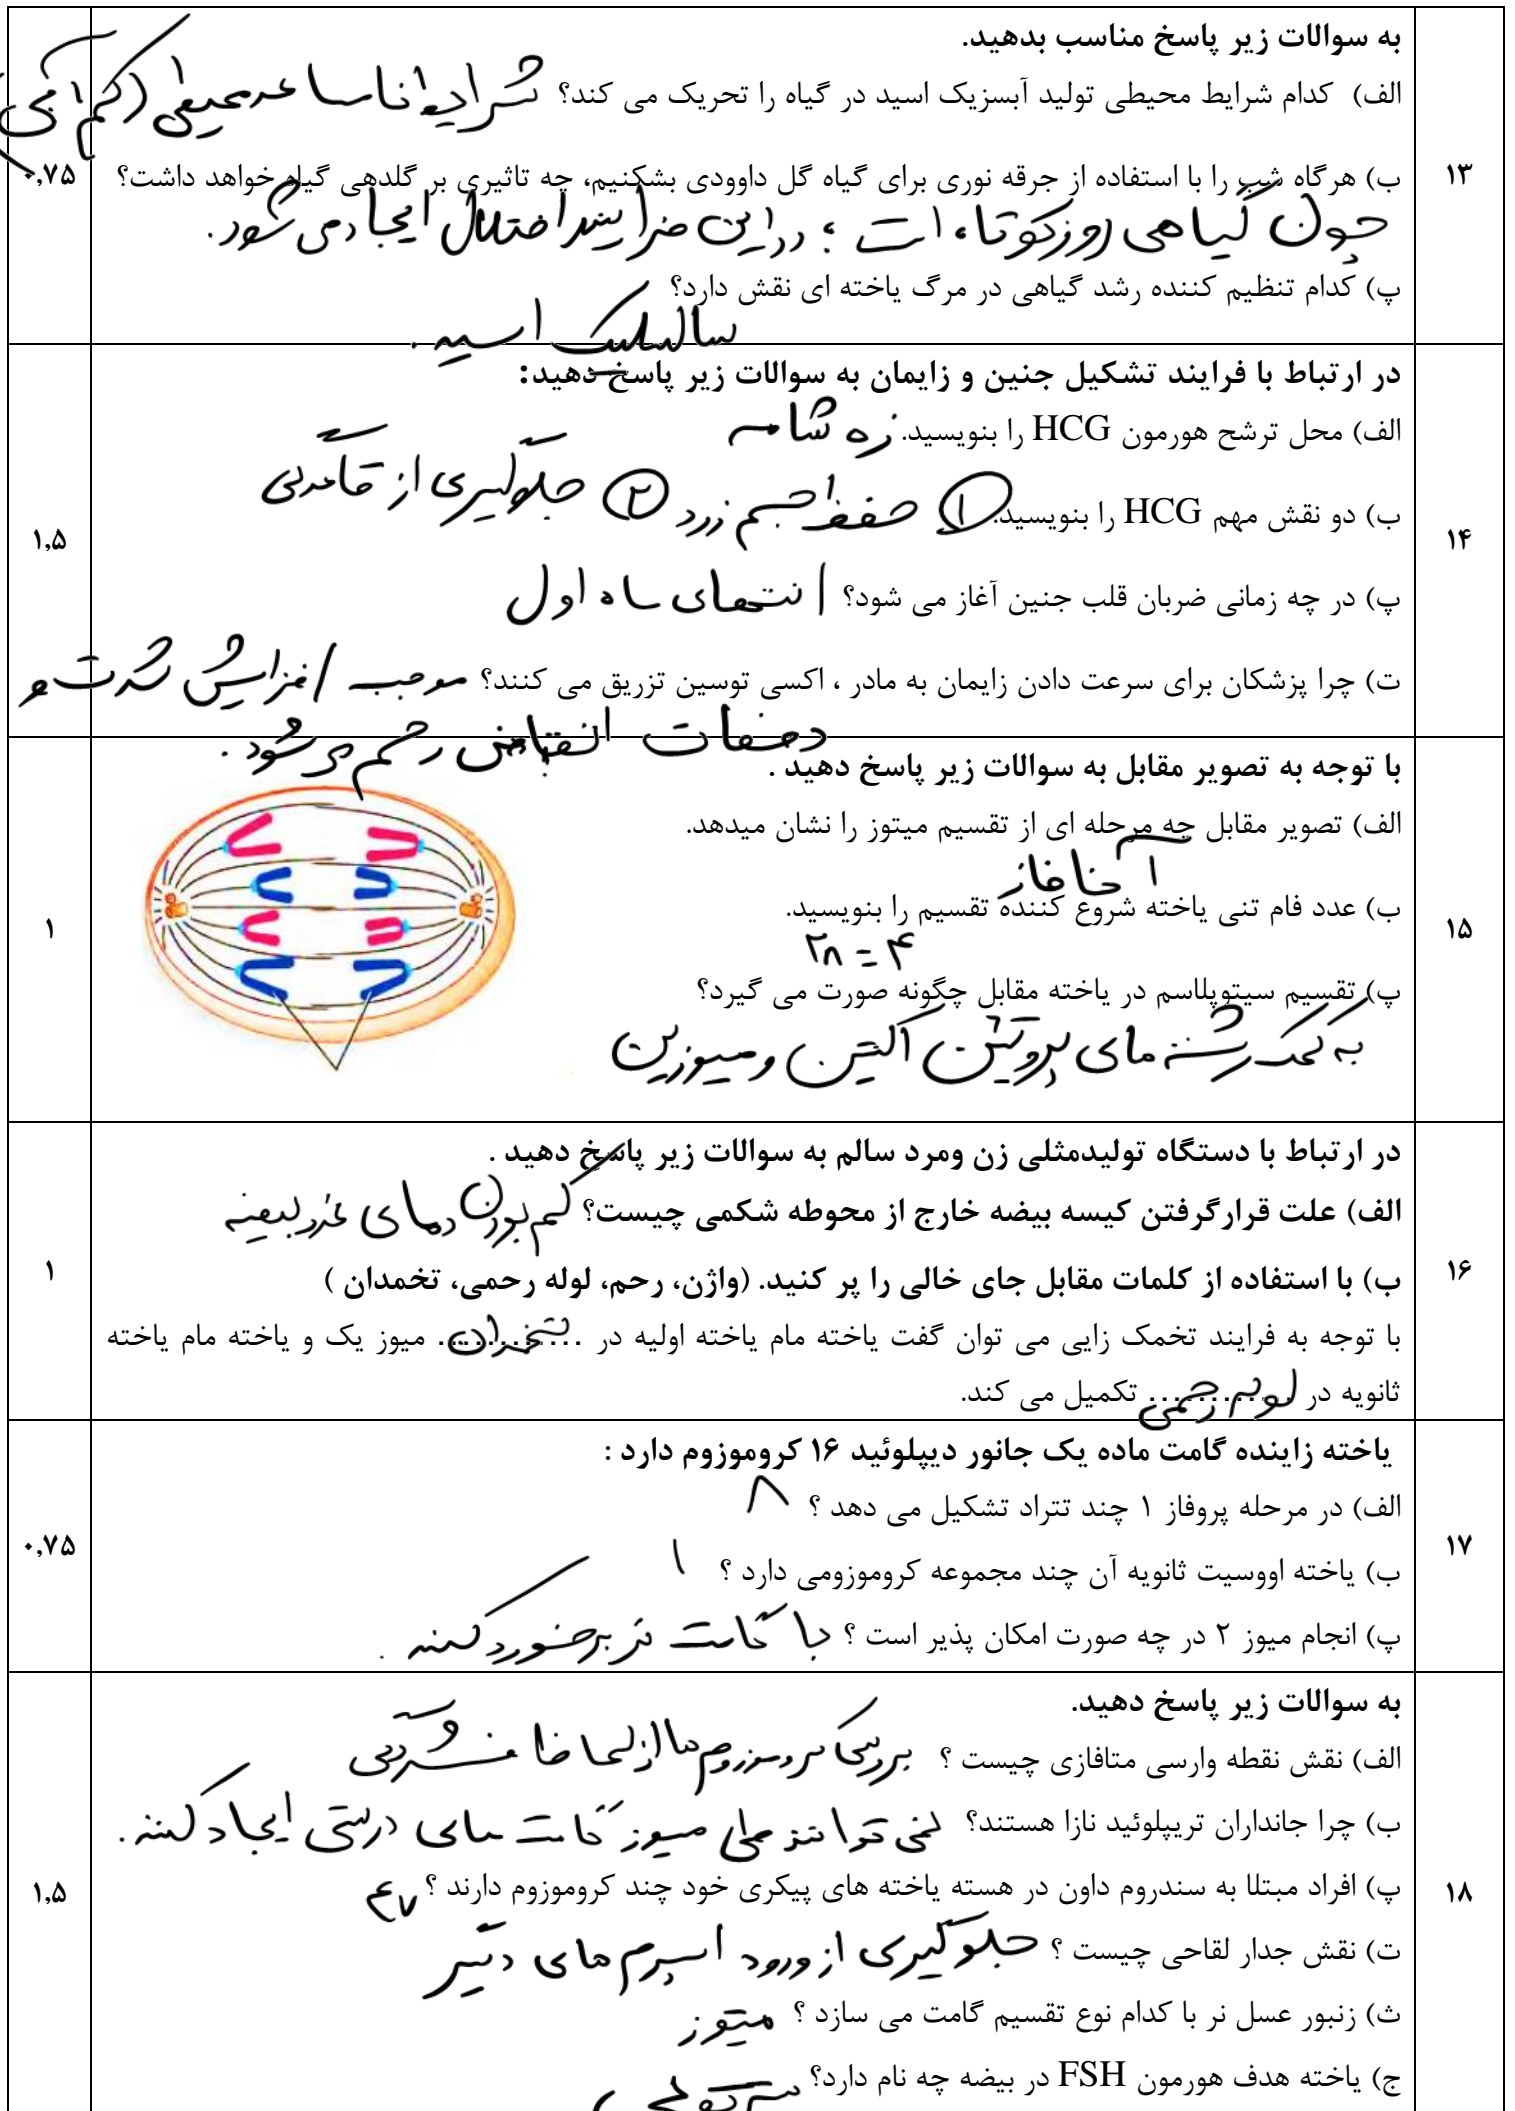 به سوالات زیر پاسخ مناسب بدهید.
الف) کدام شرایط محیطی تولید آبسزیک اسید در گیاه را تحریک می کند؟ شرایط نامساعد محیطی (کم آبی)
۱۳
۰,۷۵
ب) هرگاه شب را با استفاده از جرقه نوری برای گیاه گل داوودی بشکنیم، چه تاثیری بر گلدهی گیاه خواهد داشت؟
چون گیاهی روزکوتاه است ؛ در این فرایند اختلال ایجاد می شود .
پ) کدام تنظیم کننده رشد گیاهی در مرگ یاخته ای نقش دارد؟
سالسیلیک اسید .
در ارتباط با فرایند تشکیل جنین و زایمان به سوالات زیر پاسخ دهید:
الف) محل ترشح هورمون HCG را بنویسید. زه شامه
ب) دو نقش مهم HCG را بنویسید. ① حفظ جسم زرد ② جلوگیری از قاعدگی
۱۴
۱,۵
پ) در چه زمانی ضربان قلب جنین آغاز می شود؟ انتهای ماه اول
ت) چرا پزشکان برای سرعت دادن زایمان به مادر ، اکسی توسین تزریق می کنند؟ موجب افزایش شدت و
دفعات انقباض رحم می شود .
با توجه به تصویر مقابل به سوالات زیر پاسخ دهید .
الف) تصویر مقابل چه مرحله ای از تقسیم میتوز را نشان میدهد.
آنافاز
ب) عدد فام تنی یاخته شروع کننده تقسیم را بنویسید.
۱۵
۱
2n = ۴
پ) تقسیم سیتوپلاسم در یاخته مقابل چگونه صورت می گیرد؟
به کمک رشته های پروتئین اکتین و میوزین
در ارتباط با دستگاه تولیدمثلی زن ومرد سالم به سوالات زیر پاسخ دهید .
الف) علت قرارگرفتن کیسه بیضه خارج از محوطه شکمی چیست؟ کم بودن دمای غدد بیضه
۱۶
۱
ب) با استفاده از کلمات مقابل جای خالی را پر کنید. (واژن، رحم، لوله رحمی، تخمدان )
با توجه به فرایند تخمک زایی می توان گفت یاخته مام یاخته اولیه در .تخمدان. میوز یک و یاخته مام یاخته
ثانویه در لوله رحمی. تکمیل می کند.
یاخته زاینده گامت ماده یک جانور دیپلوئید ۱۶ کروموزوم دارد :
الف) در مرحله پروفاز ۱ چند تتراد تشکیل می دهد ؟ ۸
۱۷
۰,۷۵
ب) یاخته اووسیت ثانویه آن چند مجموعه کروموزومی دارد ؟ ۱
پ) انجام میوز ۲ در چه صورت امکان پذیر است ؟ با گامت نر برخورد کند .
به سوالات زیر پاسخ دهید.
الف) نقش نقطه وارسی متافازی چیست ؟ بررسی کروموزوم ها از لحاظ فشردگی
ب) چرا جانداران تریپلوئید نازا هستند؟ نمی توانند طی میوز گامت های درستی ایجاد کنند .
پ) افراد مبتلا به سندروم داون در هسته یاخته های پیکری خود چند کروموزوم دارند ؟ ۴۷
۱۸
۱,۵
ت) نقش جدار لقاحی چیست ؟ جلوگیری از ورود اسپرم های دیگر
ث) زنبور عسل نر با کدام نوع تقسیم گامت می سازد ؟ میتوز
ج) یاخته هدف هورمون FSH در بیضه چه نام دارد؟